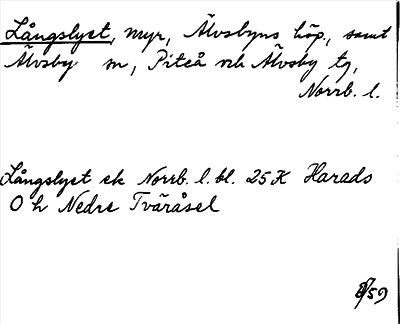 Långslyet, myr, Älvsbyns köp., samt
Älvsby sn, Piteå och Älvsby tg,
Norrb. l.
Långslyet ek Norrb. l. bl. 25K Harads
0 h Nedre Tväråsel
/59